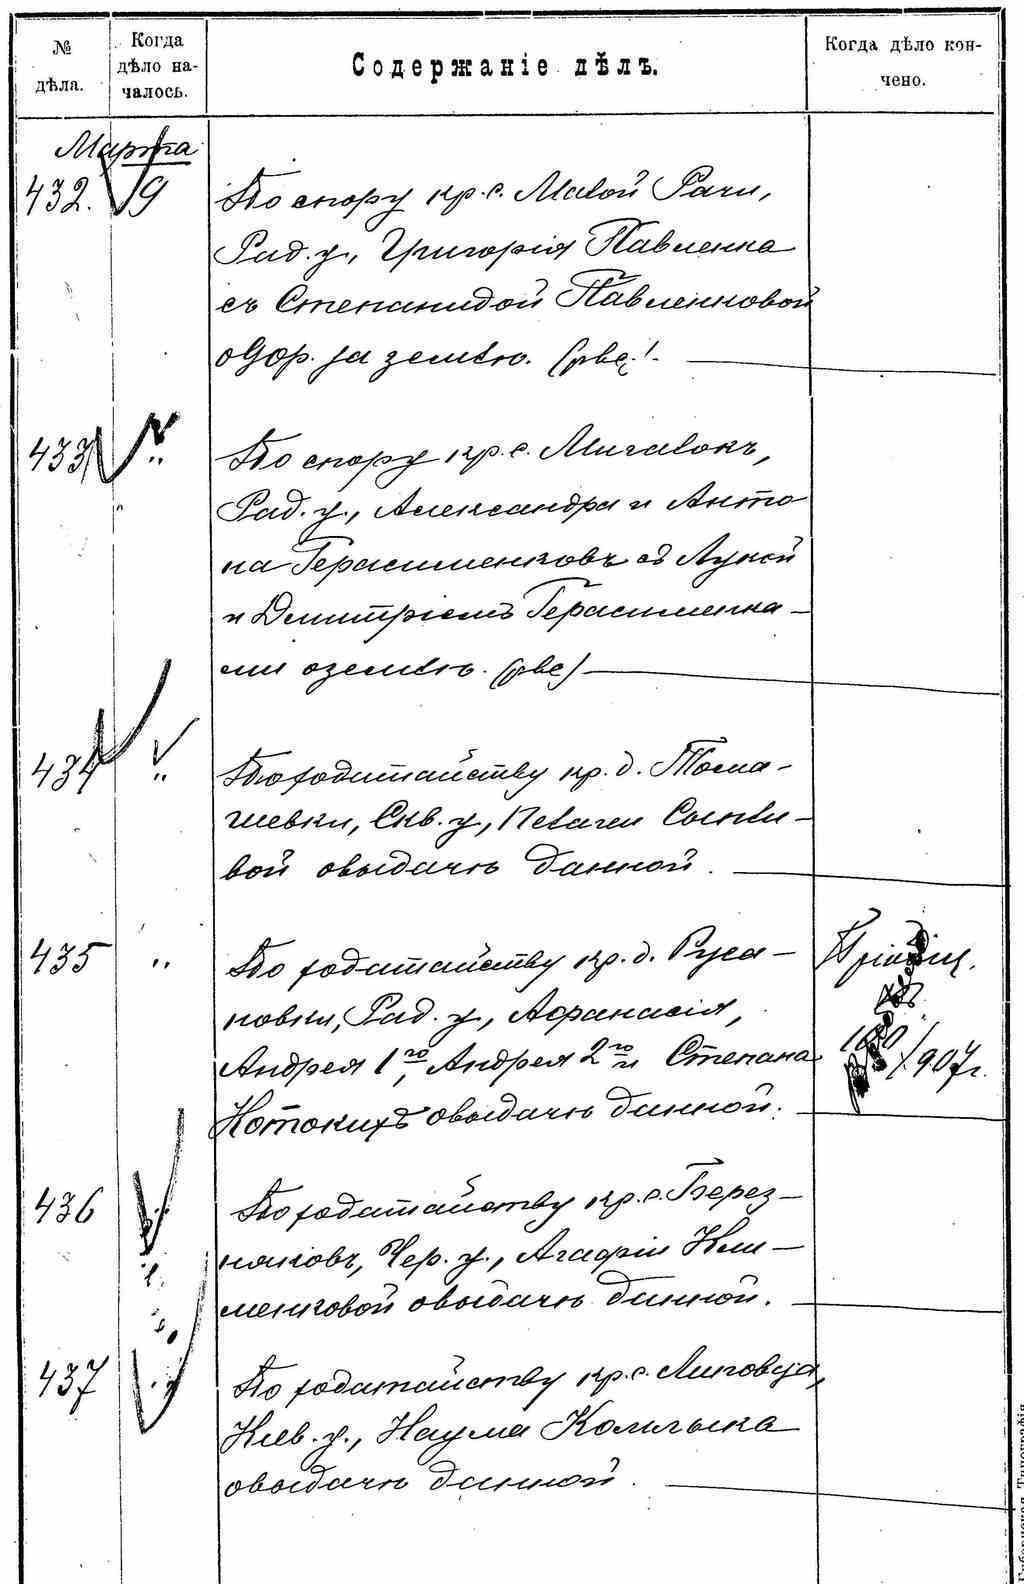 № дѣла.
Когда дѣло на-
чалось.
Содержаніе дѣлъ.
Когда дѣло кон-
чено.
Марта
432. 9
По спору кр. с. Малой Рачи,
Рад. у., Григорія Павленка
съ Степанидой Павленковой
о дор. за землю.
433 "
По спору кр. с. Мигалокъ,
Рад. у., Александра и Анто
на Герасименковъ съ Лукой
и Дмитріемъ Герасименка-
ми о землѣ.
434 "
По ходатайству кр. д. Тома-
шевки, Скв. у.,
вой о выдачѣ данной.
435 "
По ходатайству кр. д. Руса-
новки, Рад. у., Афанасія,
Андрея 1го, Андрея 2го и Степана
о выдачѣ данной.
1907г.
436
По ходатайству кр. с. Берез-
няковъ, Чер. у., Агафіи Кли-
менковой о выдачѣ данной.
437
По ходатайству кр. с.
Кіев. у., Наума
о выдачѣ данной.
Губернская Типографія